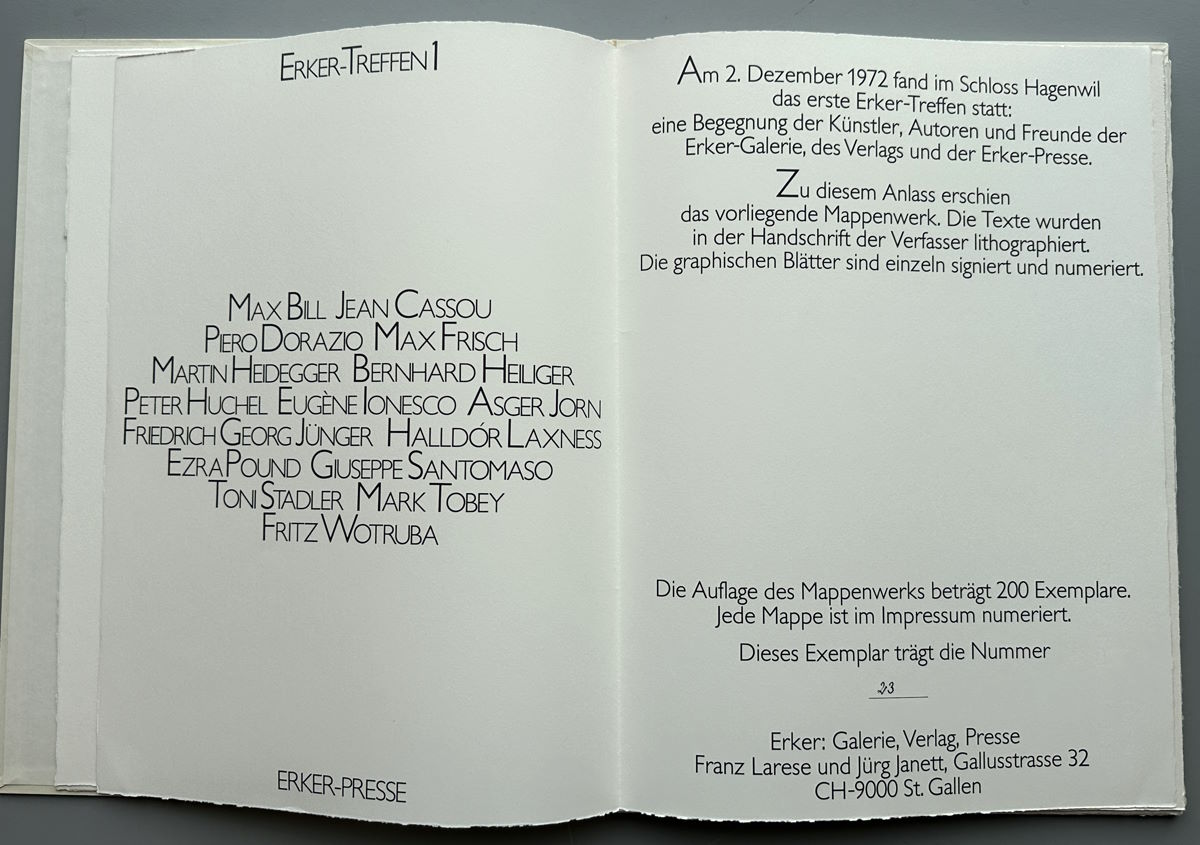 ERKER-TREFFEN 1
MAX BILL JEAN CASSOU
PIERO DORAZIO MAX FRISCH
MARTIN HEIDEGGER BERNHARD HEILIGER
PETER HUCHEL EUGÈNE IONESCO ASGER JORN
FRIEDRICH GEORG JÜNGER HALLDÓR LAXNESS
EZRA POUND GIUSEPPE SANTOMASO
TONI STADLER MARK TOBEY
FRITZ WOTRUBA
ERKER-PRESSE
Am 2. Dezember 1972 fand im Schloss Hagenwil
das erste Erker-Treffen statt:
eine Begegnung der Künstler, Autoren und Freunde der
Erker-Galerie, des Verlags und der Erker-Presse.
Zu diesem Anlass erschien
das vorliegende Mappenwerk. Die Texte wurden
in der Handschrift der Verfasser lithographiert.
Die graphischen Blätter sind einzeln signiert und numeriert.
Die Auflage des Mappenwerks beträgt 200 Exemplare.
Jede Mappe ist im Impressum numeriert.
Dieses Exemplar trägt die Nummer
23
Erker: Galerie, Verlag, Presse
Franz Larese und Jürg Janett, Gallusstrasse 32
CH-9000 St. Gallen